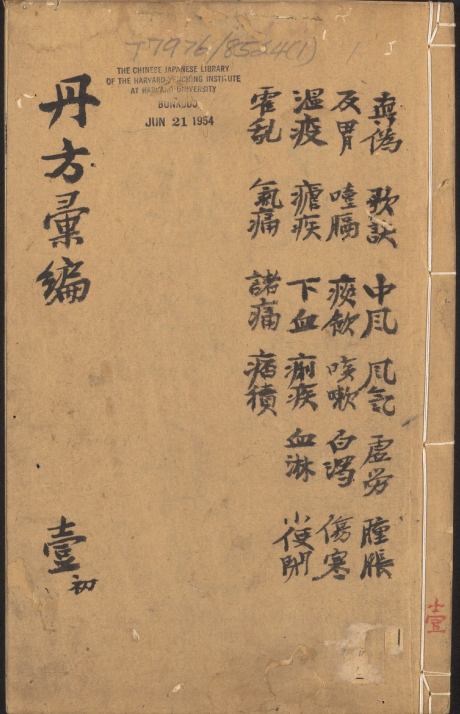 T7976/8524(1)
THE CHINESE JAPANESE LIBRARY
OF THE HARVARD-YENCHING INSTITUTE
AT HARVARD UNIVERSITY
JUN 21 1954
真偽 歌訣 中风 风氣 虛劳 腫脹
反胃 噎膈 痰飲 咳嗽 白濁 傷寒
溫疫 瘧疾 下血 痢疾 血淋 小便閉
霍乱 氣痛 諸痛 痞積
丹方彙編
壹初
壹